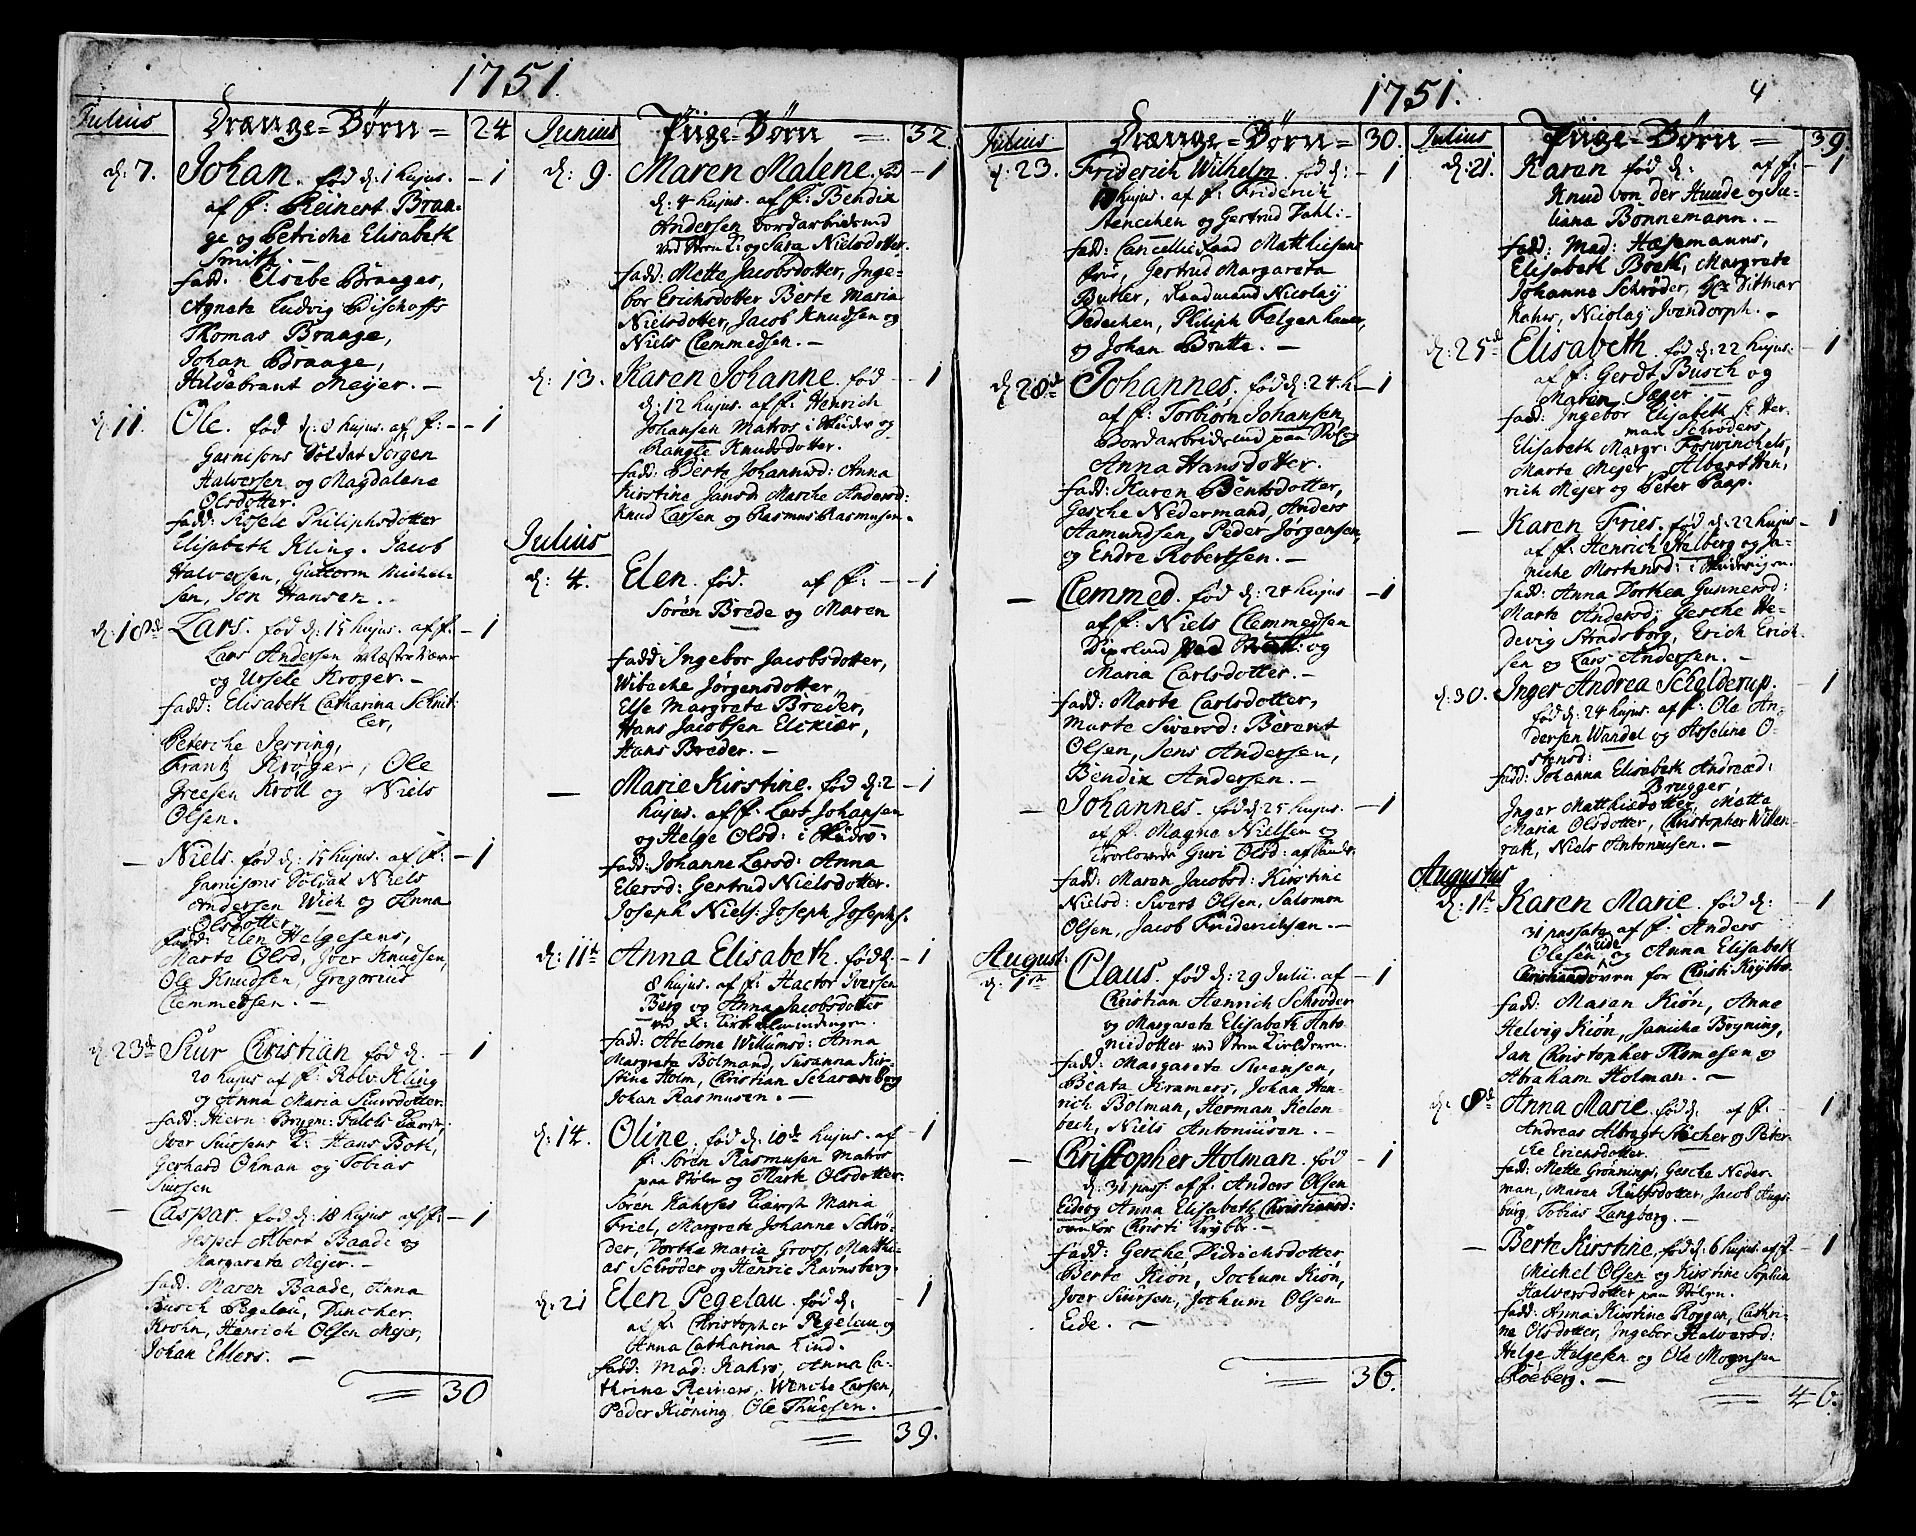 1751.
Julius
Drænge-Børn = 24
d: 7. Johan. fød d: 1 hujus. - 1
af f: Reinert Braa-
ge og Petriche Elisabeth
Smith. -
fadd: Elsebe Braages,
Agneta Ludvig Bischoffs
Thomas Braage,
Johan Braage,
Hildebrant Meyer. -
d: 11. Ole. fød d: 8 hujus. af f: - 1
Garnisons Soldat Jørgen
Halversen og Magdalene
Olsdotter.
fadd: Rosele Philiphsdotter
Elisabeth Kling. Jacob
Halversen, Guttorm Michel-
sen, Jon Hansen. -
d: 18de Lars. fød d: 15 hujus. af f. - 1
Lars Andersen
og Ursele Krøger. -
fadd: Elisabeth Catharina Schnit-
ler,
Peterche Jerring,
Frantz Krøger, Ole
Greesen Kroll og Niels
Olsen.
- Niels. fød d: 15 hujus. af f: - 1
Garnisons Soldat Niels
Andersen Wich og Anna
Olsdotter.
fadd: Elen Helgesens,
Marte Olsd, Iver Knudsen,
Ole Knudsen, Gregorius
Clemmedsen. -
d: 23de Siur Christian fød d. - 1
20 hujus af f: Rolv Kling
og Anna Maria Siursdotter.
fadd:
Iver Siursens K: Hans Both,
Gerhard Ohman og Tobias
Siursen
- Caspar. fød d: 18 hujus af f: - 1
Jesper Albert Baade og
Margareta Mejer. -
fadd: Maren Baade, Anna
Busch Pegelau, Dancher
Krohn, Henrich Olsen Mejer,
Johan Ehlers. -
30
Junius
Piige-Børn = 32.
d: 9. Maren Malene. fød - 1
d: 4 hujus. af f: Bendix
Andersen Bordarbeidsmd
og Sara Nielsdotter.
fadd: Mette Jacobsdotter, Inge-
bor Erichsdotter Berte Maria
Nielsdotter, Jacob Knudsen og
Niels Clemmedsen. -
d: 13. Karen Johanne. fød - 1
d: 12 hujus. af f: Henrich
Johansen Matros i og
Rangle Knudsdotter.
fadd: Berte Johannsd: Anna
Kirstine Jansd Marche Andersd:
Knud Larsen og Rasmus Rasmusen.
Julius
d: 4. Elen. fød. af f: - 1
Søren Brede og Maren
fadd: Ingebor Jacobsdotter,
Wibeche Jørgensdotter,
Else Margreta Breder,
Hans Jacobsen Elckiær,
Hans Breder. -
- Marie Kirstine. fød d: 2 - 1
hujus. af f. Lars Johansen
og Helge Olsd: i
fadd: Johanne Larsd: Anna
Elersd: Gertrud Nielsdotter.
Joseph Niels: Joseph Josephs.
d: 11te Anna Elisabeth. fød d. - 1
8 hujus. af f: Hactor Iversen
Berg og Anna Jacobsdotter
fadd: Abelone Willumsd: Anna
Margreta Bolmand, Susanna Kir-
stine Holm, Christian Scharenberg
Johan Rasmusen. -
d: 14. Oline. fød d: 10de hujus. af - 1
f: Søren Rasmusen Matros
paa Stølen og Marte Olsdotter.
Søren Kahrses Kiærest Maria
Friel, Margrete Johanne Schrø-
der, Dorthe Maria Groos, Matthi-
as Schrøder og Henric Ravnsberg.
d: 21 Elen Pegelau. fød d: - 1
af f. Christopher Pegelau og
Anna Catharina Lind.
fadd: Mad: Kahrs, Anna Ca-
thrine Reiners, Wenche Larsen,
Peder Kiøning Ole Thuesen.
39.
1751.
4
Julius
Drænge-Børn = 30.
d. 23. Friderich Wilhelm. fød d: - 1
hujus. af f: Friderich
Hencchen og Gertrud Dahl:
fadd: Cancellie Raad Matthiesens
frue, Gertrud Margareta
Butler, Raadmand Nicolaij
Vedechen, Philiph Felgenhauer,
og Johan Brutte. -
d: 28de Johannes. fød d: 24 h - 1
af f: Torbiørn Johansen
Bordarbeidsmd paa og
Anna Hansdotter.
fadd: Karen Bentsdotter,
Gesche Nedermand, Anders
Aamundsen, Peder Jørgensen,
og Endre Robertsen. -
- Clemmed. fød d: 24 hujus - 1
af f: Niels Clemmedsen
og
Maria Carlsdotter. -
fadd: Marte Carlsdotter,
Marte Siversd: Berent
Olsen, Jens Andersen,
Bendix Andersen. -
- Johannes. fød d: 25 hujus. - 1
af f. Magne Nielsen og
Trorlovede Guri Olsd:
fadd: Maren Jacobsd: Kirstine
Nielsd: Sivert Olsen, Salomon
Olsen, Jacob Friderichsen. -
August:
d. 1ste Claus. fød d: 29 Julii. af - 1
Christian Henrich Schrøder
og Margareta Elisabeth Anto-
niidotter
fadd: Margareta Svensen,
Beata Kramers, Johan Hen-
rich Bolman, Herman Kelen-
bech, Niels Antoniusen. -
- Christopher Holman. fød - 1
d: 31 pass: af f. Anders Olsen
Eide og Anna Elisabeth Christiansd:
ovenfor Christi Krybbe. -
fadd: Gerche Didrichsdotter
Berte Kiøn, Jochum Kiøn,
Iver Siursen, Jochum Olsen
Eide. -
36.
Julius
Piige-Børn = 39.
d: 21. Karen fød d: af f: - 1
Knud von der Hude og Ju-
liana Bonnemann. -
fadd: Mad: Hæsemanns,
Elisabeth Breth, Margrete
Johanne Schrøder, Hr Ditmar
Kahrs, Nicolaj Ivendorph. -
d: 25de Elisabeth. fød d: 22 hujus - 1
af f: Gerdt Busch og
Maren Jæger. -
fadd: Ingebor Elisabeth Sl: Her-
man Schrøders,
Elisabeth Margr: Foswinchels,
Marte Mejer, Albert Hen,
rich Mejer og Peter Paap.
- Karen Fries. fød d: 22 hujus - 1
af f: Henrich Helberg og Ja-
niche Mortensd:
fadd: Anna Dorthea Gunnersd:
Marte Andersd: Gesche He-
devig Stradsborg, Erich Erich-
sen og Lars Andersen. -
d: 30. Inger Andrea Schelderup. - 1
fød d: 24 hujus. af f: Ole An-
dersen Wandel og Asseline O-
stensd:
fadd: Johanna Elisabeth Andreæd:
Brugger,
Inger Matthisdotter, Mette
Maria Olsdotter, Christopher Willen-
rath, Niels Antoniusen. -
Augustus
d: 1te Karen Marie. fød d: - 1
31 passato af f. Anders
Olsen Eide og Anna Elisabeth
Christiansd ovenfor Christi Krybbe.
fadd: Maren Kiøn, Anne
Helvig Kiøn, Janicke Bryning,
Jan Christopher Thomesen og
Abraham Holman. -
d. 8de Anna Marie. fød d: af f: - 1
Andreas Albregt Stocher og Peter-
che Erichsdotter.
fadd: Mette Grønnings, Gesche Neder-
man, Maren Rulfsdotter, Jacob Augs-
burg, Tobias Langberg. -
- Berte Kirstine, fød d: 6 hujus. af f. - 1
Michel Olsen og Kirstine Sophia
Halversdotter paa Stølen.
fadd: Anna Kirstine Roggen, Cathri-
na Olsdotter, Ingebor Halversd:
Helge Helgesen og Ole Mognsen
Roeberg. -
46.